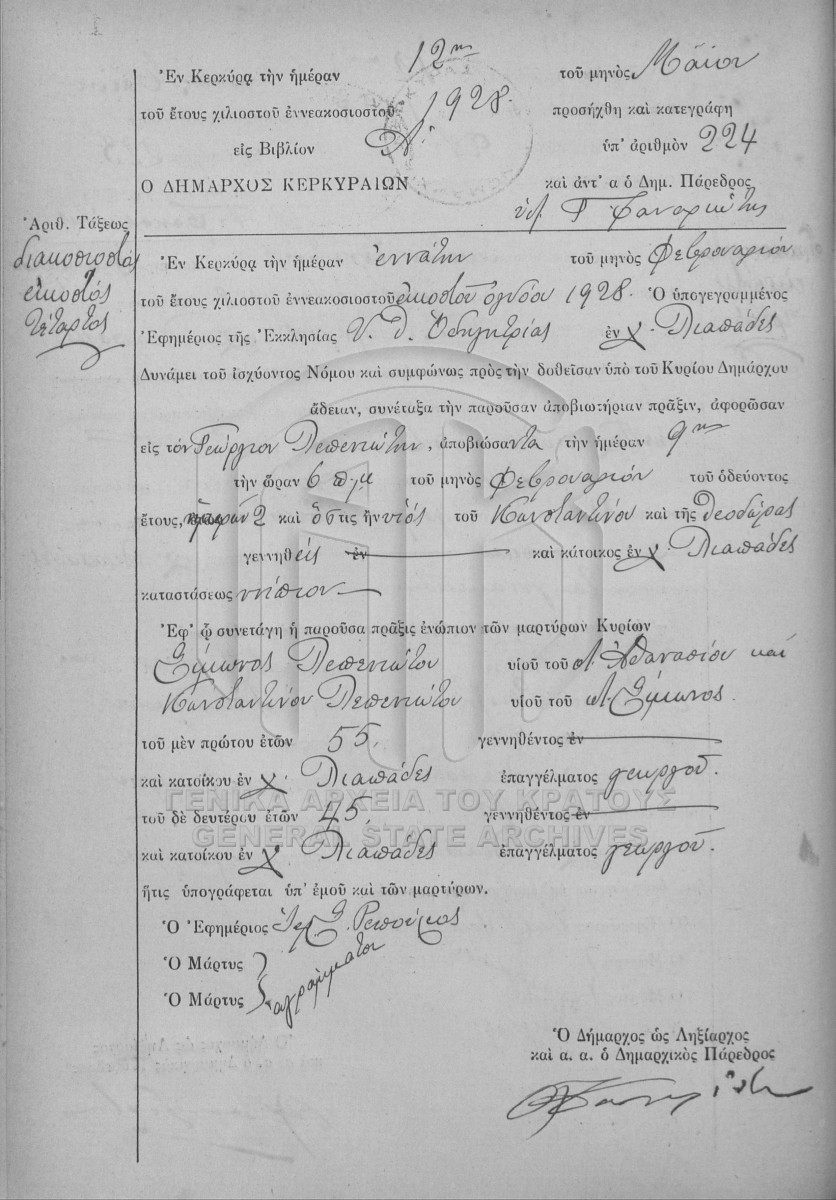 Ἐν Κερκύρᾳ τὴν ἡμέραν 12ην τοῦ μηνὸς Μαΐου
τοῦ ἔτους χιλιοστοῦ ἐννεακοσιοστοῦ 1928. προσήχθη καὶ κατεγράφη
εἰς Βιβλίον Α' ὑπ' ἀριθμὸν 224
Ο ΔΗΜΑΡΧΟΣ ΚΕΡΚΥΡΑΙΩΝ καὶ ἀντ' α ὁ Δημ. Πάρεδρος
Φαναριώτης
Ἀριθ. Τάξεως
διακοσιοστός
εἰκοστός
τέταρτος
Ἐν Κερκύρᾳ τὴν ἡμέραν ἐννάτην τοῦ μηνὸς Φεβρουαρίου
τοῦ ἔτους χιλιοστοῦ ἐννεακοσιοστοῦ εἰκοστοῦ ὀγδόου 1928. Ὁ ὑπογεγραμμένος
Ἐφημέριος τῆς Ἐκκλησίας Υ. Θ. Ὁδηγητρίας ἐν χ. Λιαπάδες
Δυνάμει τοῦ ἰσχύοντος Νόμου καὶ συμφώνως πρὸς τὴν δοθεῖσαν ὑπὸ τοῦ Κυρίου Δημάρχου
ἄδειαν, συνέταξα τὴν παροῦσαν ἀποβιωτήριαν πρᾶξιν, ἀφορῶσαν
εἰς τὸν Γεώργιον Λεπενιώτην, ἀποβιώσαντα τὴν ἡμέραν 9ην
τὴν ὥραν 6 π.μ τοῦ μηνὸς Φεβρουαρίου τοῦ ὁδεύοντος
ἔτους, ἡμερῶν 2 καὶ ὅστις ἦν υἱὸς τοῦ Κωνσταντίνου καὶ τῆς Θεοδώρας
γεννηθείς ἐν καὶ κάτοικος ἐν χ. Λιαπάδες
καταστάσεως νήπιον
Ἐφ' ᾧ συνετάγη ἡ παροῦσα πρᾶξις ἐνώπιον τῶν μαρτύρων Κυρίων
Σίμωνος Λεπενιώτου υἱοῦ τοῦ π. Ἀθανασίου καὶ
Κωνσταντίνου Λεπενιώτου υἱοῦ τοῦ π. Σίμωνος.
τοῦ μὲν πρώτου ἐτῶν 55. γεννηθέντος ἐν
καὶ κατοίκου ἐν χ. Λιαπάδες ἐπαγγέλματος γεωργοῦ.
ΓΕΝΙΚΑ ΑΡΧΕΙΑ ΤΟΥ ΚΡΑΤΟΥΣ
τοῦ δὲ δευτέρου ἐτῶν 45. γεννηθέντος ἐν
GENERAL STATE ARCHIVES
καὶ κατοίκου ἐν χ. Λιαπάδες ἐπαγγέλματος γεωργοῦ.
ἥτις ὑπογράφεται ὑπ' ἐμοῦ καὶ τῶν μαρτύρων.
Ὁ Ἐφημέριος Ἱερ. Σ.
Ὁ Μάρτυς
Ὁ Μάρτυς ἀγράμματοι
Ὁ Δήμαρχος ὡς Ληξίαρχος
καὶ α. α. ὁ Δημαρχικὸς Πάρεδρος